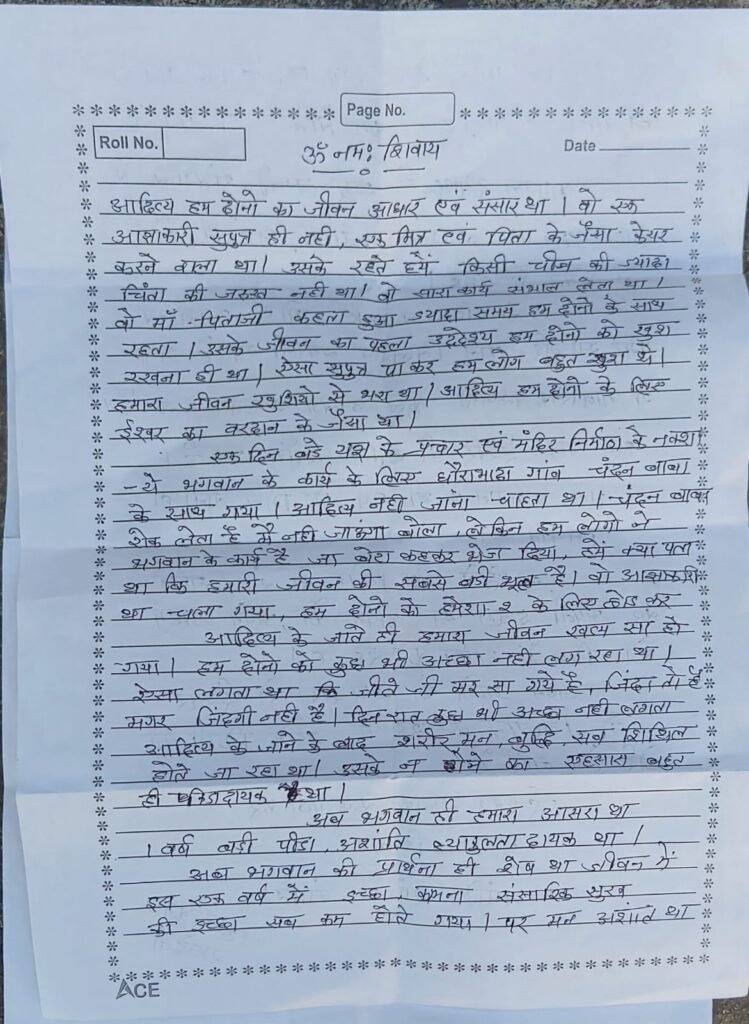 Page No.
Roll No.
Date
ॐ नमः शिवाय
आदित्य हम दोनो का जीवन आधार एवं संसार था । वो एक
आज्ञाकारी सुपुत्र ही नही, एक मित्र एवं पिता के जैसा केयर
करने वाला था। उसके रहते हमें किसी चीज की ज्यादा
चिंता की जरुरत नही था। वो सारा कार्य संभाल लेता था ।
वो माँ-पिताजी कहता हुआ ज्यादा समय हम दोनो के साथ
रहता । उसके जीवन का पहला उद्देश्य हम दोनो को खुश
रखना ही था । ऐसा सुपुत्र पा कर हम लोग बहुत खुश थे।
हमारा जीवन खुशियो से भरा था। आदित्य हम दोनो के लिए
ईश्वर का वरदान के जैसा था।
एक दिन बडे यज्ञ के प्रचार एवं मंदिर निर्माण के नक्शा
ये भगवान के कार्य के लिए धौराभाठा गांव चंदन बाबा
के साथ गया । आदित्य नही जाना चाहता था । चंदन बाबा
रोक लेता है मै नही जाऊंगा बोला, लेकिन हम लोगो ने
भगवान के कार्य है जा बेटा कहकर भेज दिया, हमें क्या पता
था कि हमारी जीवन की सबसे बडी भूल है। वो आज्ञाकारी
था चला गया, हम दोनो को हमेशा २ के लिए छोड कर
आदित्य के जाते ही हमारा जीवन खत्म सा हो
गया । हम दोनो को कुछ भी अच्छा नही लग रहा था ।
ऐसा लगता था कि जीते जी मर सा गये है, जिंदा तो है
मगर जिंदगी नही है । दिन रात कुछ भी अच्छा नही लगता
आदित्य के जाने के बाद शरीर, मन, बुद्धि, सब शिथिल
होते जा रहा था। उसके न होने का एहसास बहुत
ही था ।
अब भगवान ही हमारा आसरा था
1 वर्ष बडी पीडा, अशांति व्याकुलता दायक था ।
अब भगवान की प्रार्थना ही शेष था जीवन में
इस एक वर्ष में इच्छा कामना संसारिक सुख
की इच्छा सब कम होते गया । पर मन अशांत था
ACE